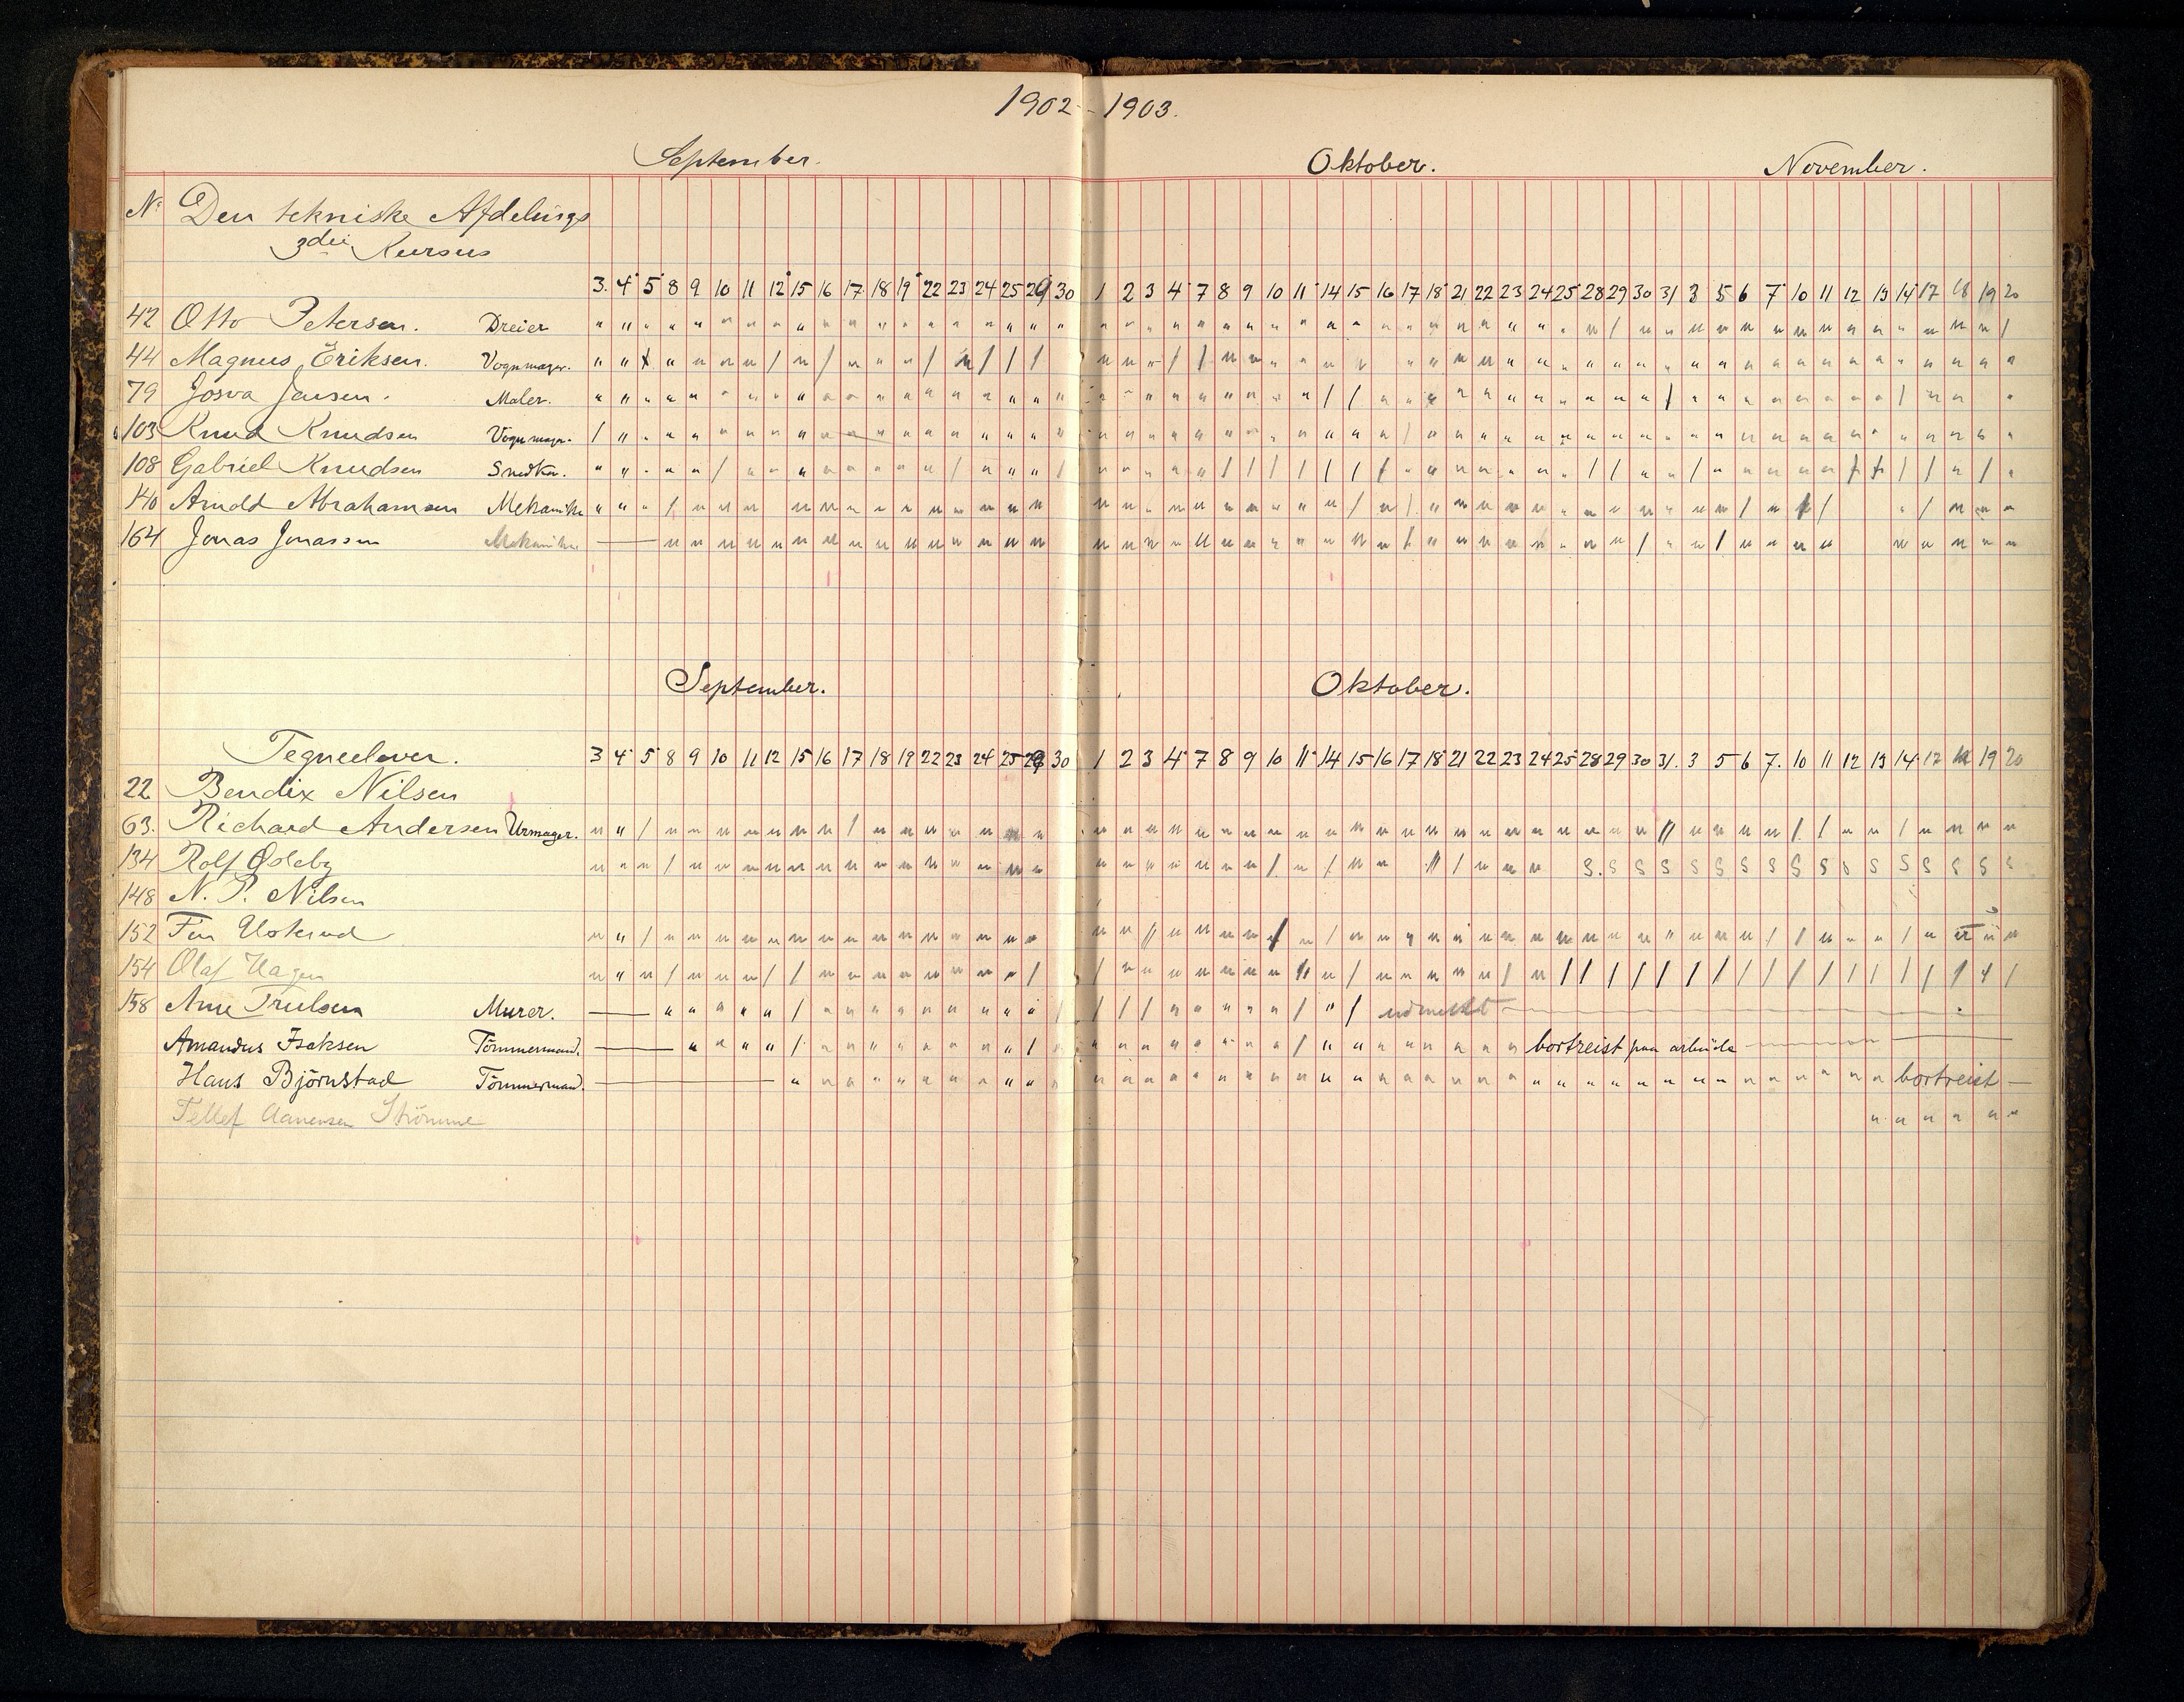 1902 - 1903.
September. Oktober. November.
N. Den tekniske Afdelings
3die Kursus
3. 4 5 8 9 10 11 12 15 16 17 18 19 22 23 24 25 29 30 1 2 3 4 7 8 9 10 11 14 15 16 17 18 21 22 23 24 25 28 29 30 31 3 5 6 7 10 11 12 13 14 17 18 19 20
42 Otto Petersen. Dreier
44 Magnus Eriksen. Vognmager.
79 Josva Jensen. Maler.
103 Knud Knudsen Vognmager.
108 Gabriel Knudsen Snedker.
140 Arnold Abrahamsen Mekaniker
164 Jonas Jonassen Mekaniker
September. Oktober.
Tegneelever. 3 4 5 8 9 10 11 12 15 16 17 18 19 22 23 24 25 29 30 1 2 3 4 7 8 9 10 11 14 15 16 17 18 21 22 23 24 25 28 29 30 31. 3 5 6 7. 10 11 12 13 14 17 18 19 20
22 Bendix Nilsen
63. Richard Andersen Urmager.
134 Rolf S. S S S S S S S S S S S S S S S S
148 N. P. Nilsen
152
154 Olaf Hagen
158 Arne Trulsen Murer. udmeldt
Amandus Isaksen Tömmermand. bortreist paa arbeide
Hans Björnstad Tömmermand. bortreist
Tellef Aanensen Strömme